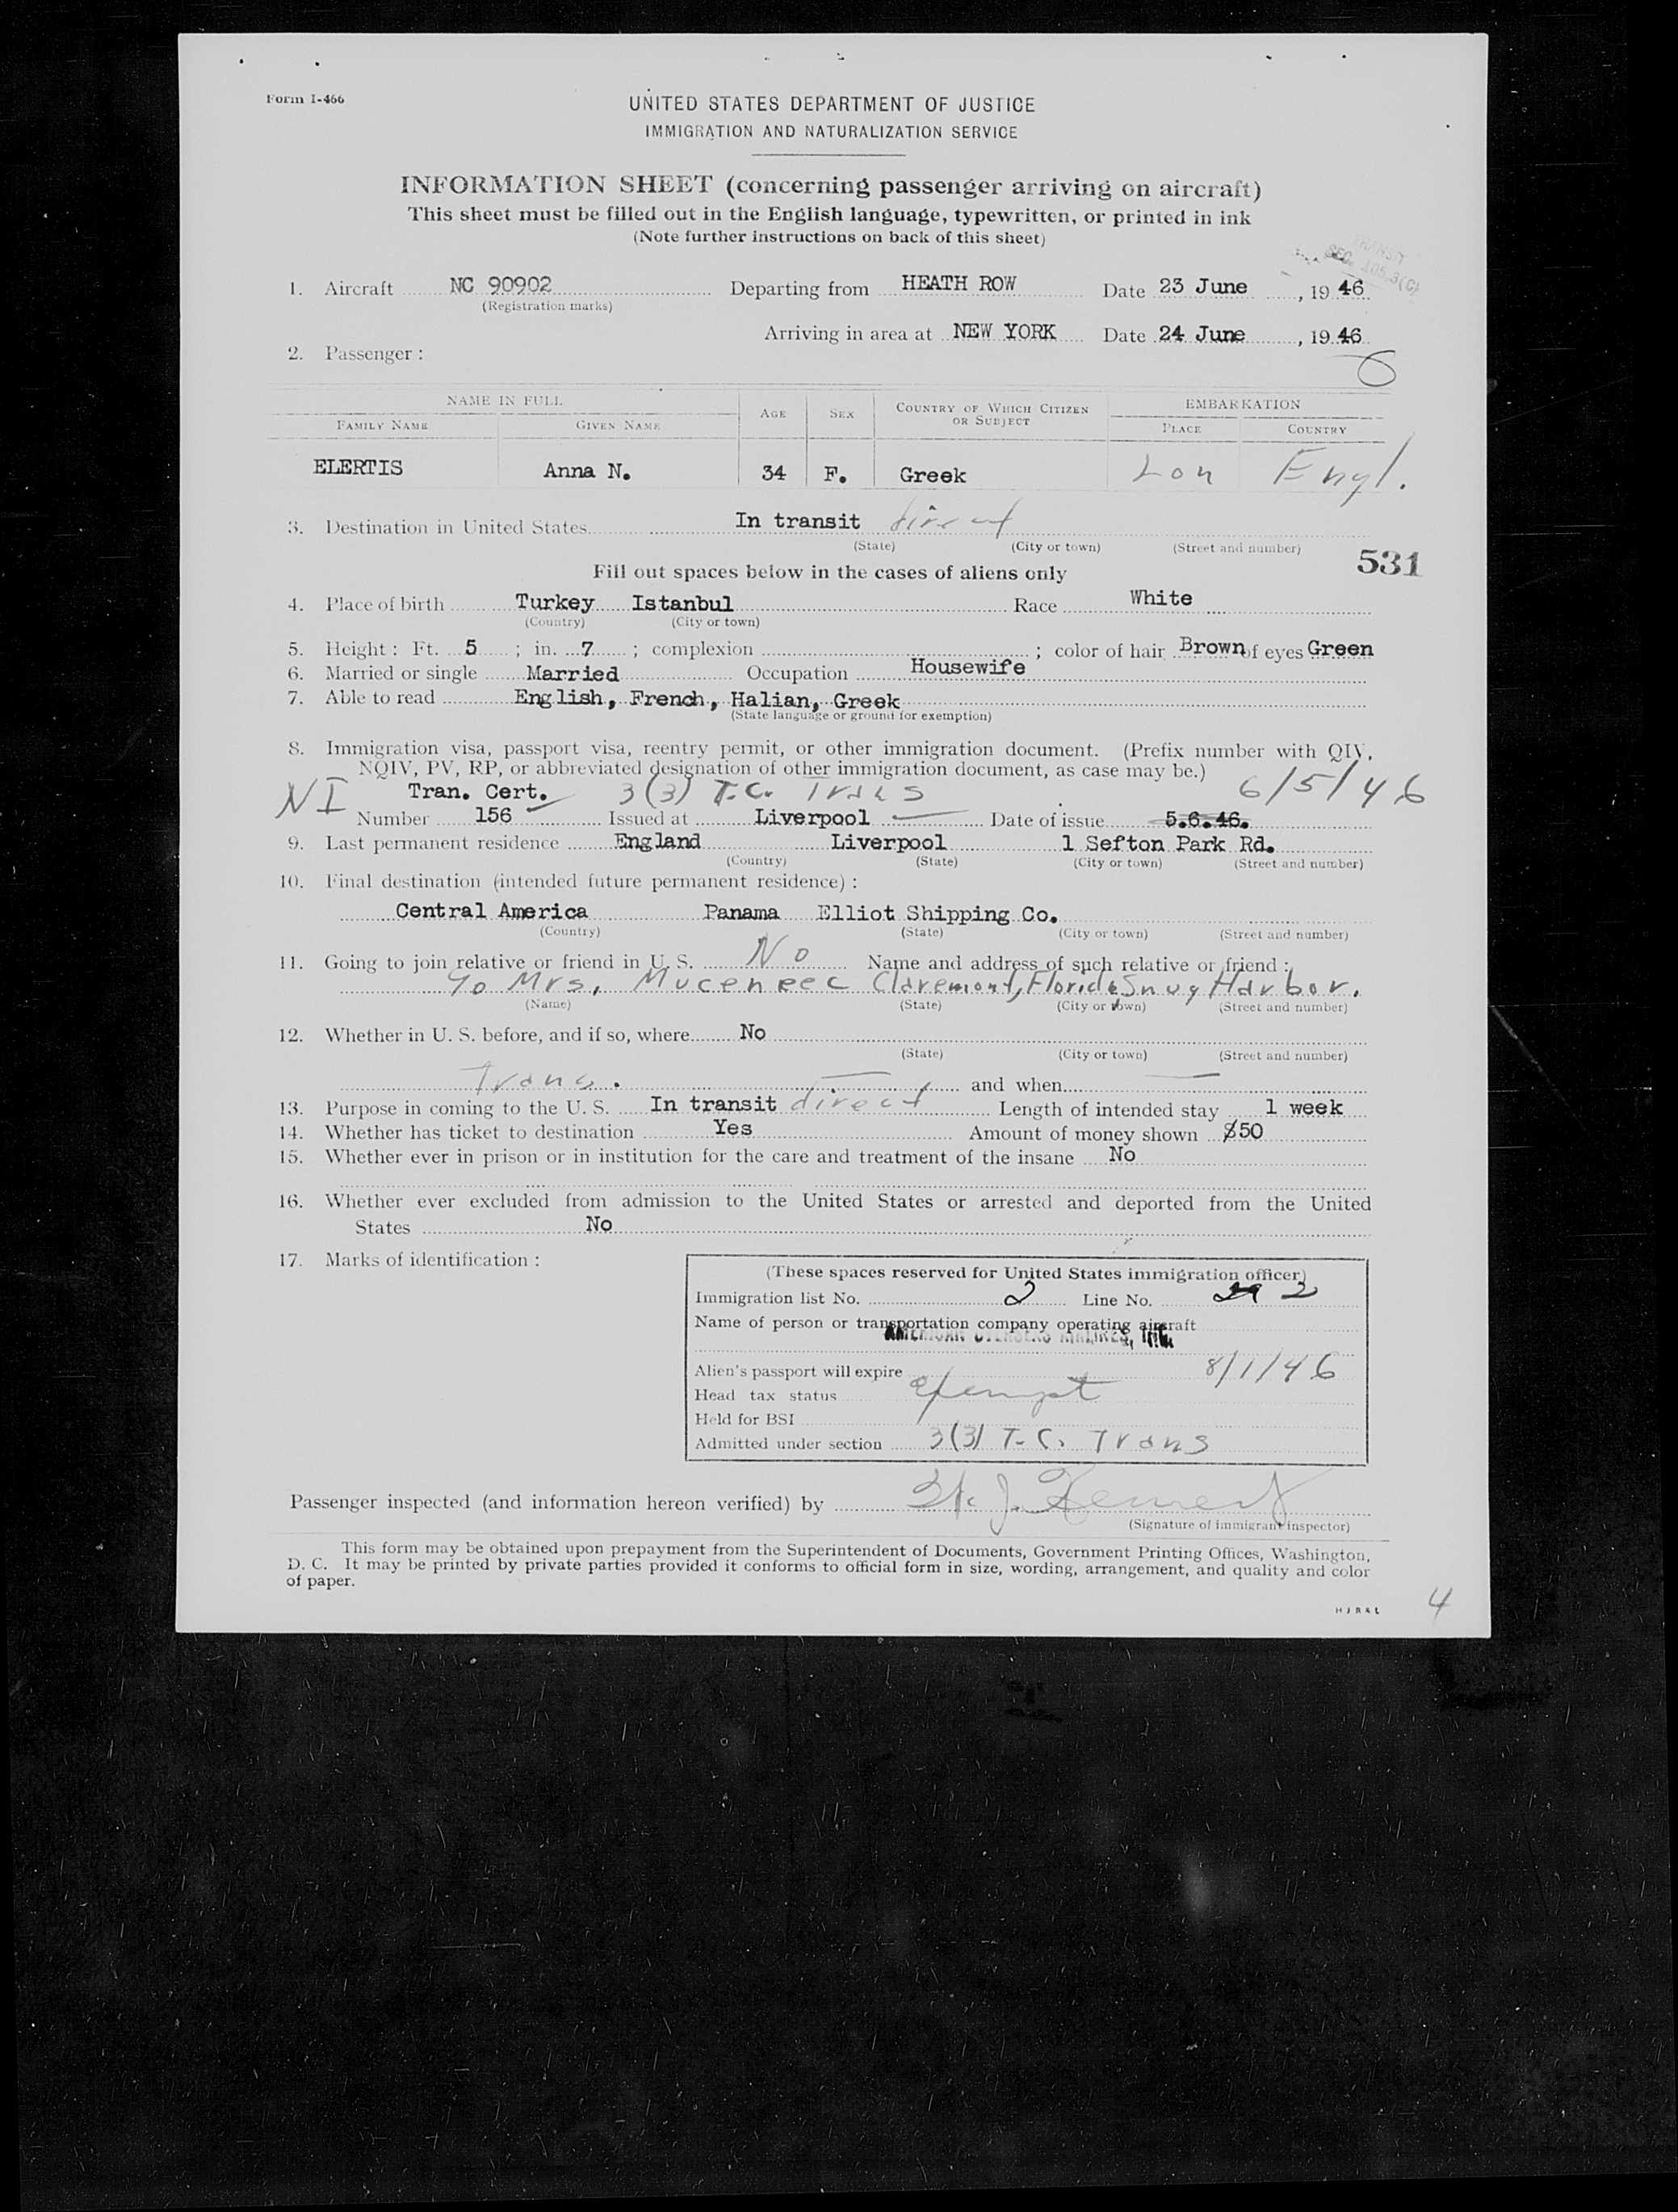 Form I-466
UNITED STATES DEPARTMENT OF JUSTICE
IMMIGRATION AND NATURALIZATION SERVICE
INFORMATION SHEET (concerning passenger arriving on aircraft)
This sheet must be filled out in the English language, typewritten, or printed in ink
(Note further instructions on back of this sheet)
TRANSIT
SEC. 105.3(C)
1. Aircraft NC 90902 Departing from HEATH ROW Date 23 June, 1946
(Registration marks)
Arriving in area at NEW YORK Date 24 June, 1946
2. Passenger:
NAME IN FULL AGE SEX COUNTRY OF WHICH CITIZEN OR SUBJECT EMBARKATION
FAMILY NAME GIVEN NAME PLACE COUNTRY
ELERTIS Anna N. 34 F. Greek Lon Engl.
3. Destination in United States In transit direct
(State) (City or town) (Street and number)
531
Fill out spaces below in the cases of aliens only
4. Place of birth Turkey Istanbul Race White
(Country) (City or town)
5. Height: Ft. 5; in. 7; complexion ; color of hair Brown of eyes Green
6. Married or single Married Occupation Housewife
7. Able to read English, French, Halian, Greek
(State language or ground for exemption)
8. Immigration visa, passport visa, reentry permit, or other immigration document. (Prefix number with QIV,
NQIV, PV, RP, or abbreviated designation of other immigration document, as case may be.)
NI Tran. Cert. 3(3) T.C. Trans 6/5/46
Number 156 Issued at Liverpool Date of issue 5.6.46.
9. Last permanent residence England Liverpool 1 Sefton Park Rd.
(Country) (State) (City or town) (Street and number)
10. Final destination (intended future permanent residence):
Central America Panama Elliot Shipping Co.
(Country) (State) (City or town) (Street and number)
11. Going to join relative or friend in U. S. No Name and address of such relative or friend:
Mrs. Claremont, Florida Snug Harbor.
(Name) (State) (City or town) (Street and number)
12. Whether in U. S. before, and if so, where No
(State) (City or town) (Street and number)
Trans. and when
13. Purpose in coming to the U. S. In transit direct Length of intended stay 1 week
14. Whether has ticket to destination Yes Amount of money shown $50
15. Whether ever in prison or in institution for the care and treatment of the insane No
16. Whether ever excluded from admission to the United States or arrested and deported from the United
States No
17. Marks of identification:
(These spaces reserved for United States immigration officer)
Immigration list No. 2 Line No. 2
Name of person or transportation company operating aircraft
AMERICAN OVERSEAS AIRLINES, INC.
Alien's passport will expire 8/1/46
Head tax status exempt
Held for BSI
Admitted under section 3(3) T.C. Trans
Passenger inspected (and information hereon verified) by
(Signature of immigrant inspector)
This form may be obtained upon prepayment from the Superintendent of Documents, Government Printing Offices, Washington,
D. C. It may be printed by private parties provided it conforms to official form in size, wording, arrangement, and quality and color
of paper.
HJR&L 4